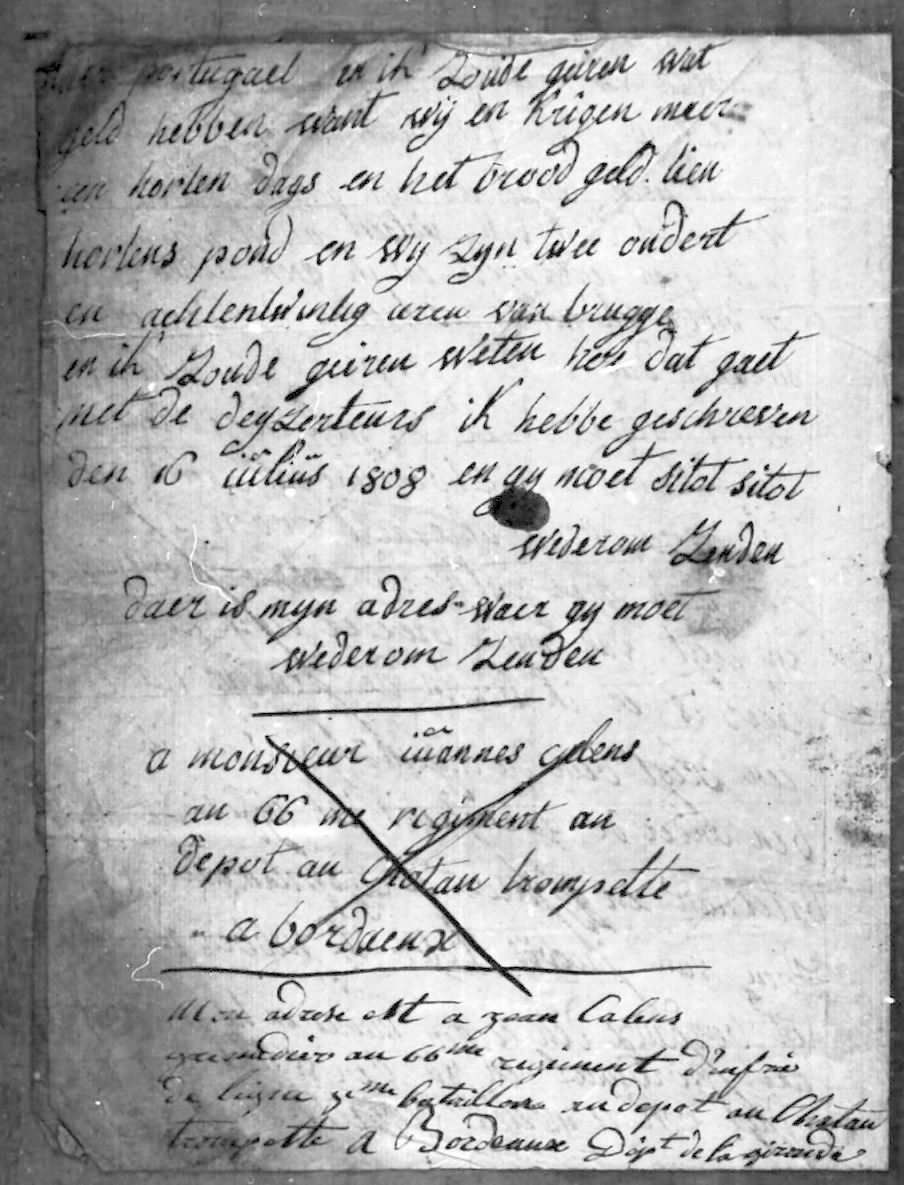 naer portugael en ik Zoude geiren wat
geld hebben want wij en krigen maer
een horten dags en het brood geld tien
hortens pond en wy zyn twee ondert
en achtentwintig uren van brugge
en ik Zoude geiren weten hoe dat gaet
met de deyzerteurs ik hebbe geschreven
den 16 iulius 1808 en gy moet sitot sitot
wederom Zenden
daer is myn adres waer gy moet
wederom Zenden
a monsieur iuannes calens
au 66 me regiment au
depot au Chatau trompette
a bordaeux
Mon adrese est a jean Calens
grenadier au 66me regiment d'infrie
de ligne 5me bataillon au depot au Chatau
trompette A Bordeaux Dépt de la gironde